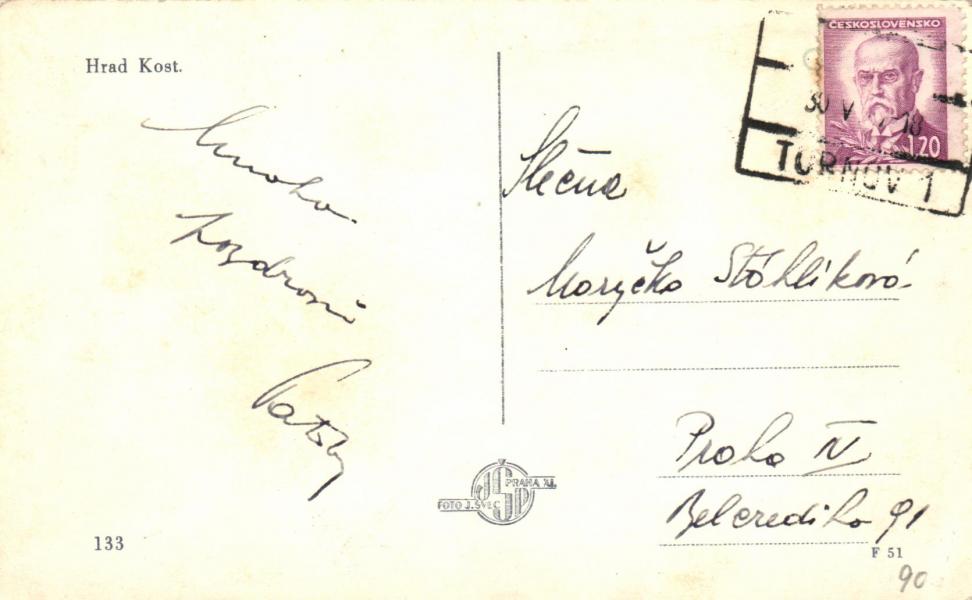 Hrad Kost.
Mnoho
pozdravů
ČESKOSLOVENSKO
1.20
30 V
18
TURNOV 1
Slečna
Maryčka Stöhlíková
Praha IV
Belcrediho 91
FOTO J. ŠVEC
PRAHA XI.
133
F 51
90